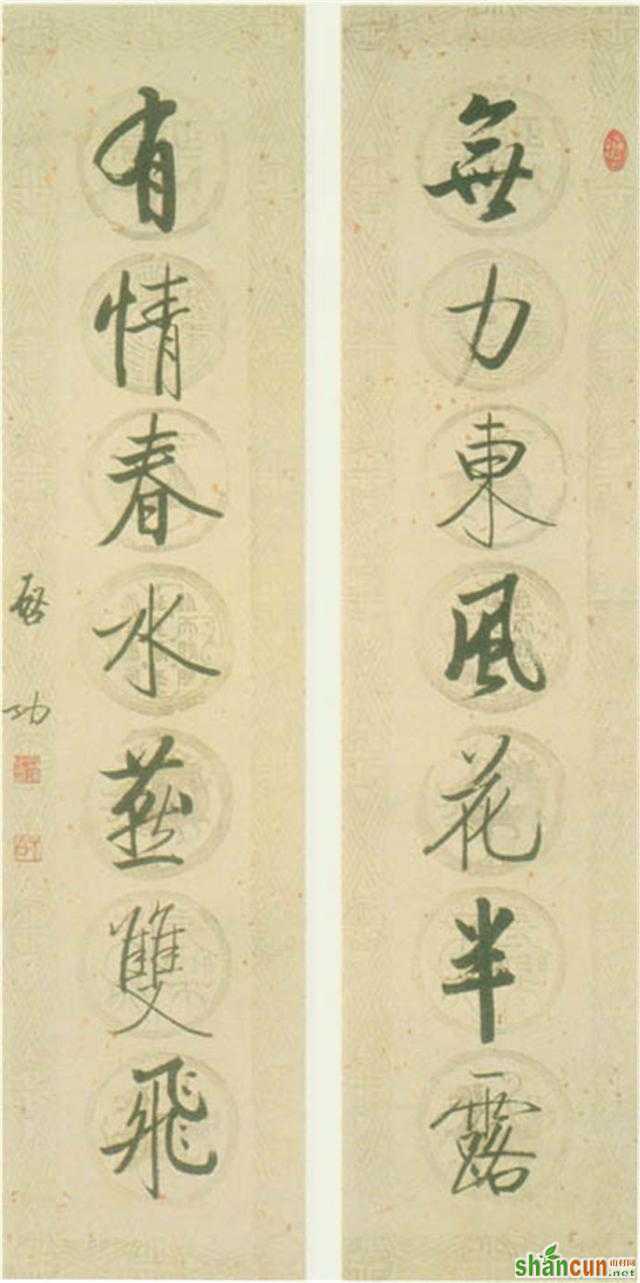 無力東風花半露
有情春水燕雙飛
啟功
shancun
山村网
.net